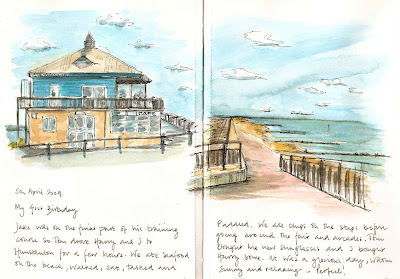 5th April 2009
My 41st Birthday
Jake was on the final part of his training
course so Tom drove Harry and I to
Hunstanton for a few hours. We ate seafood
on the beach, walked, sat, talked and
Paddled. We ate chips on the steps before
going around the fair and arcades. Tom
bought me new sunglasses and I bought
Harry some. It was a glorious day, warm
sunny and relaxing - Perfect.